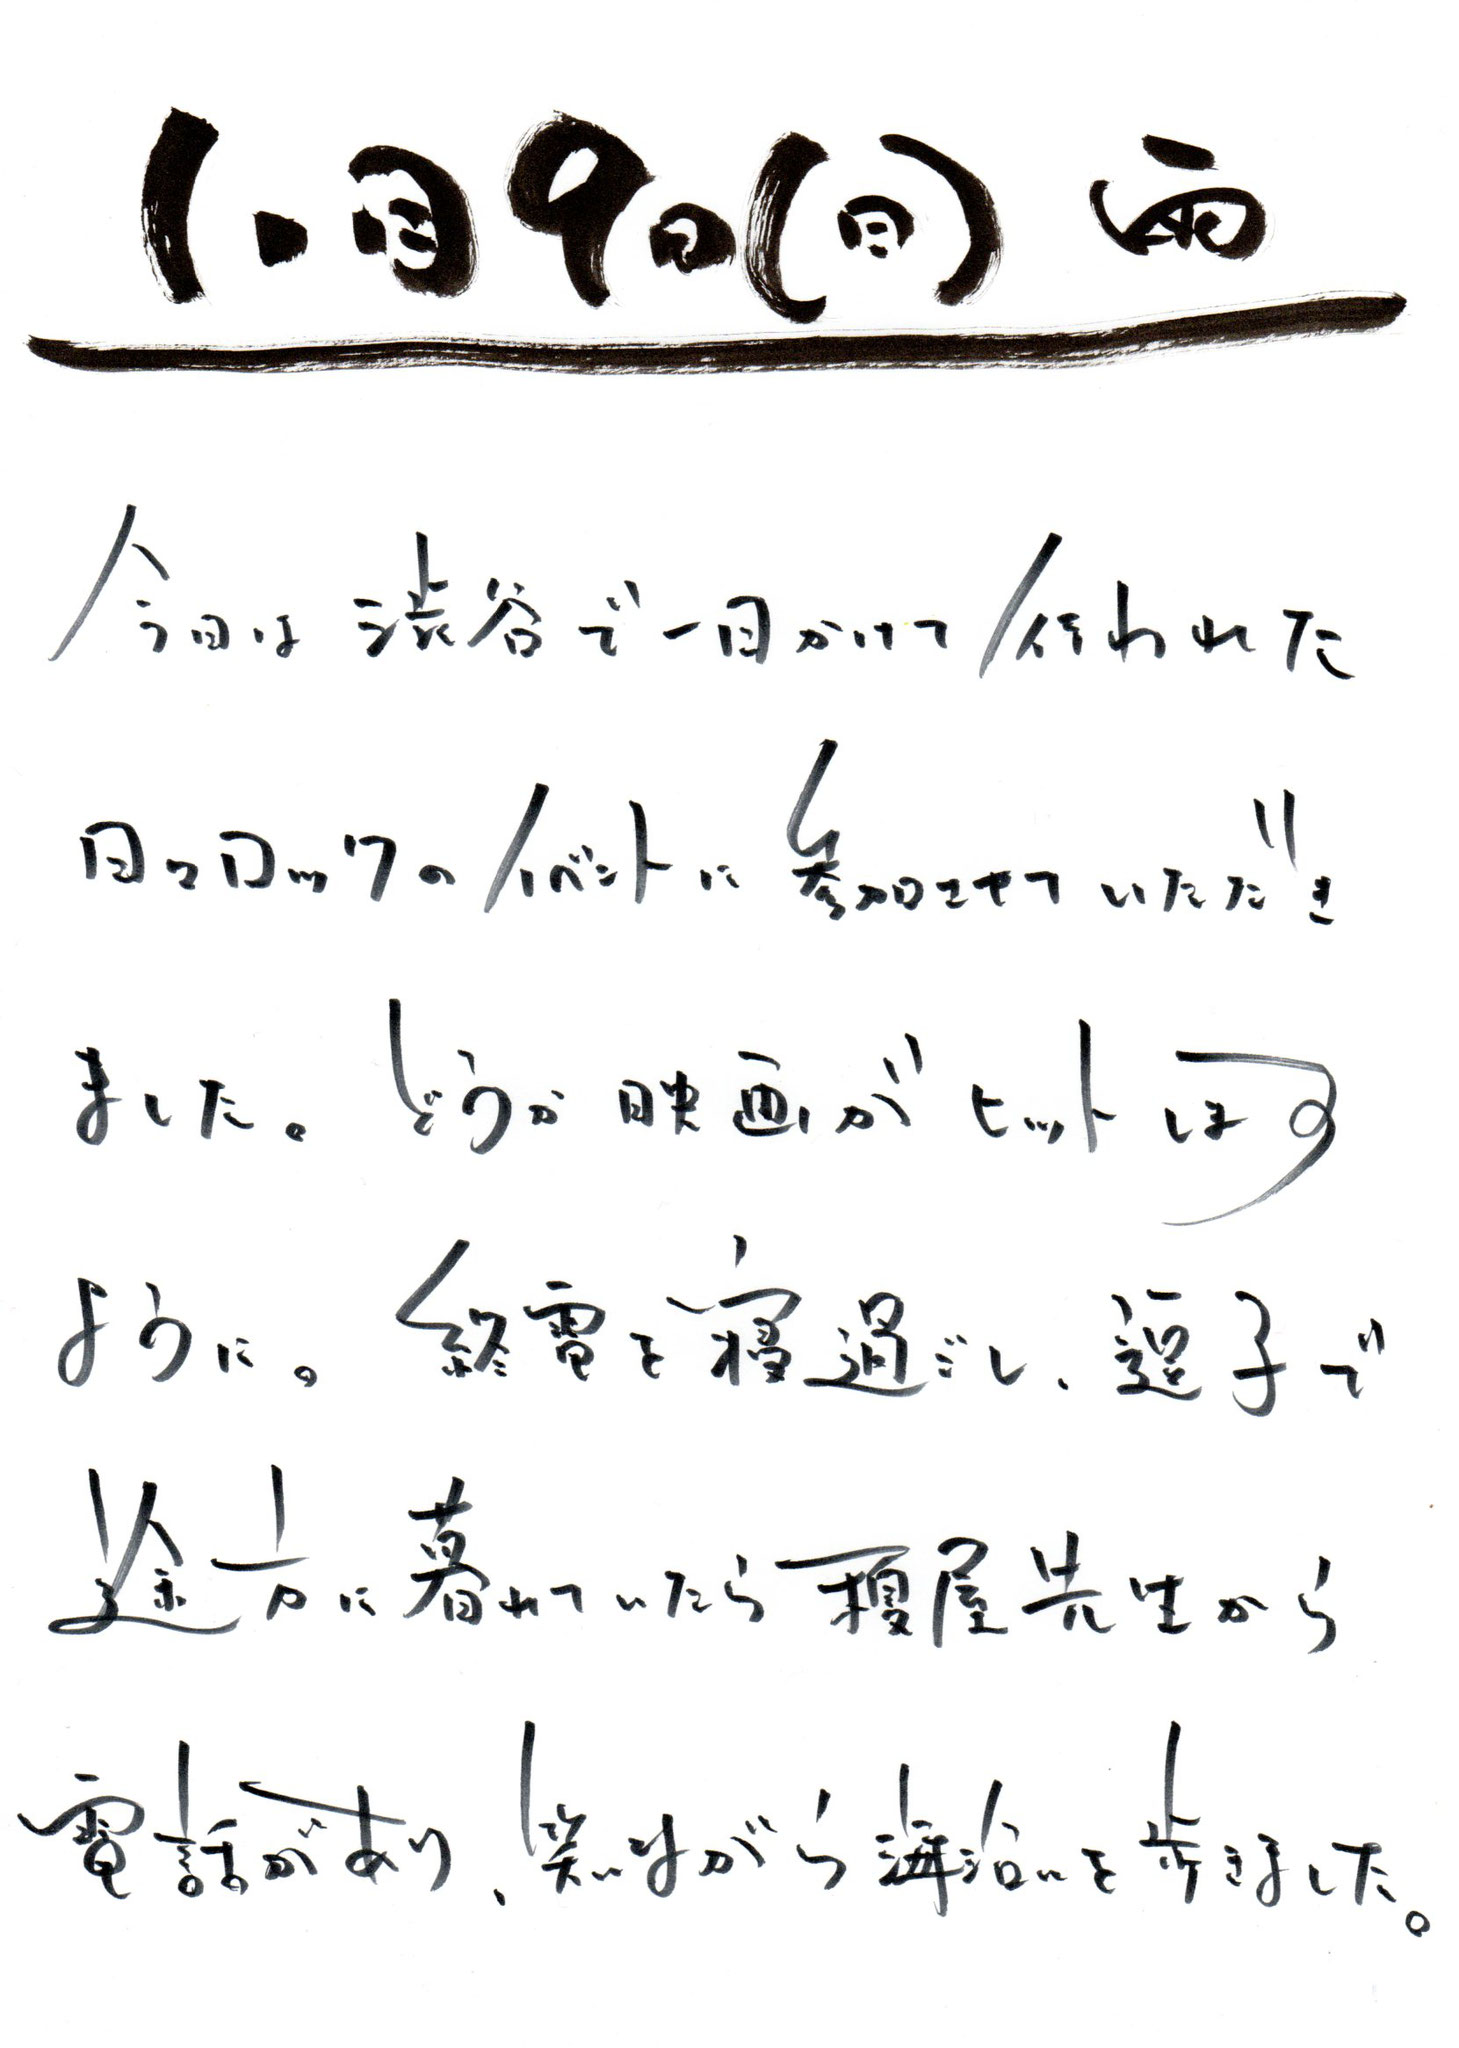 11月9日(日) 雨
今日は渋谷で一日かけて行われた
日々ロックのイベントに参加させていただき
ました。どうか映画がヒットします
ように。終電を寝過ごし、逗子で
途方に暮れていたら榎屋先生から
電話があり、笑いながら海沿いを歩きました。